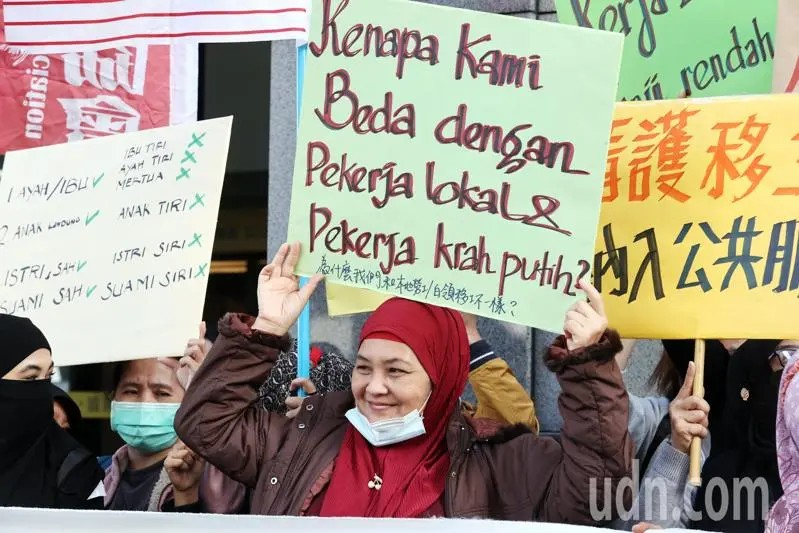 ciation
協會
1 AYAH/IBU ✓
2 ANAK KANDUNG ✓
ISTRI SAH ✓
SUAMI SAH ✓
IBU TIRI ×
AYAH TIRI ×
MERTUA ×
ANAK TIRI ×
ISTRI SIRI ×
SUAMI SIRI ×
Kenapa Kami
Beda dengan
Pekerja lokal &
Pekerja krah putih?
為什麼我們和本地勞工/白領移工不一樣?
Kerja
rendah
看護移工
納入公共服
udn.com